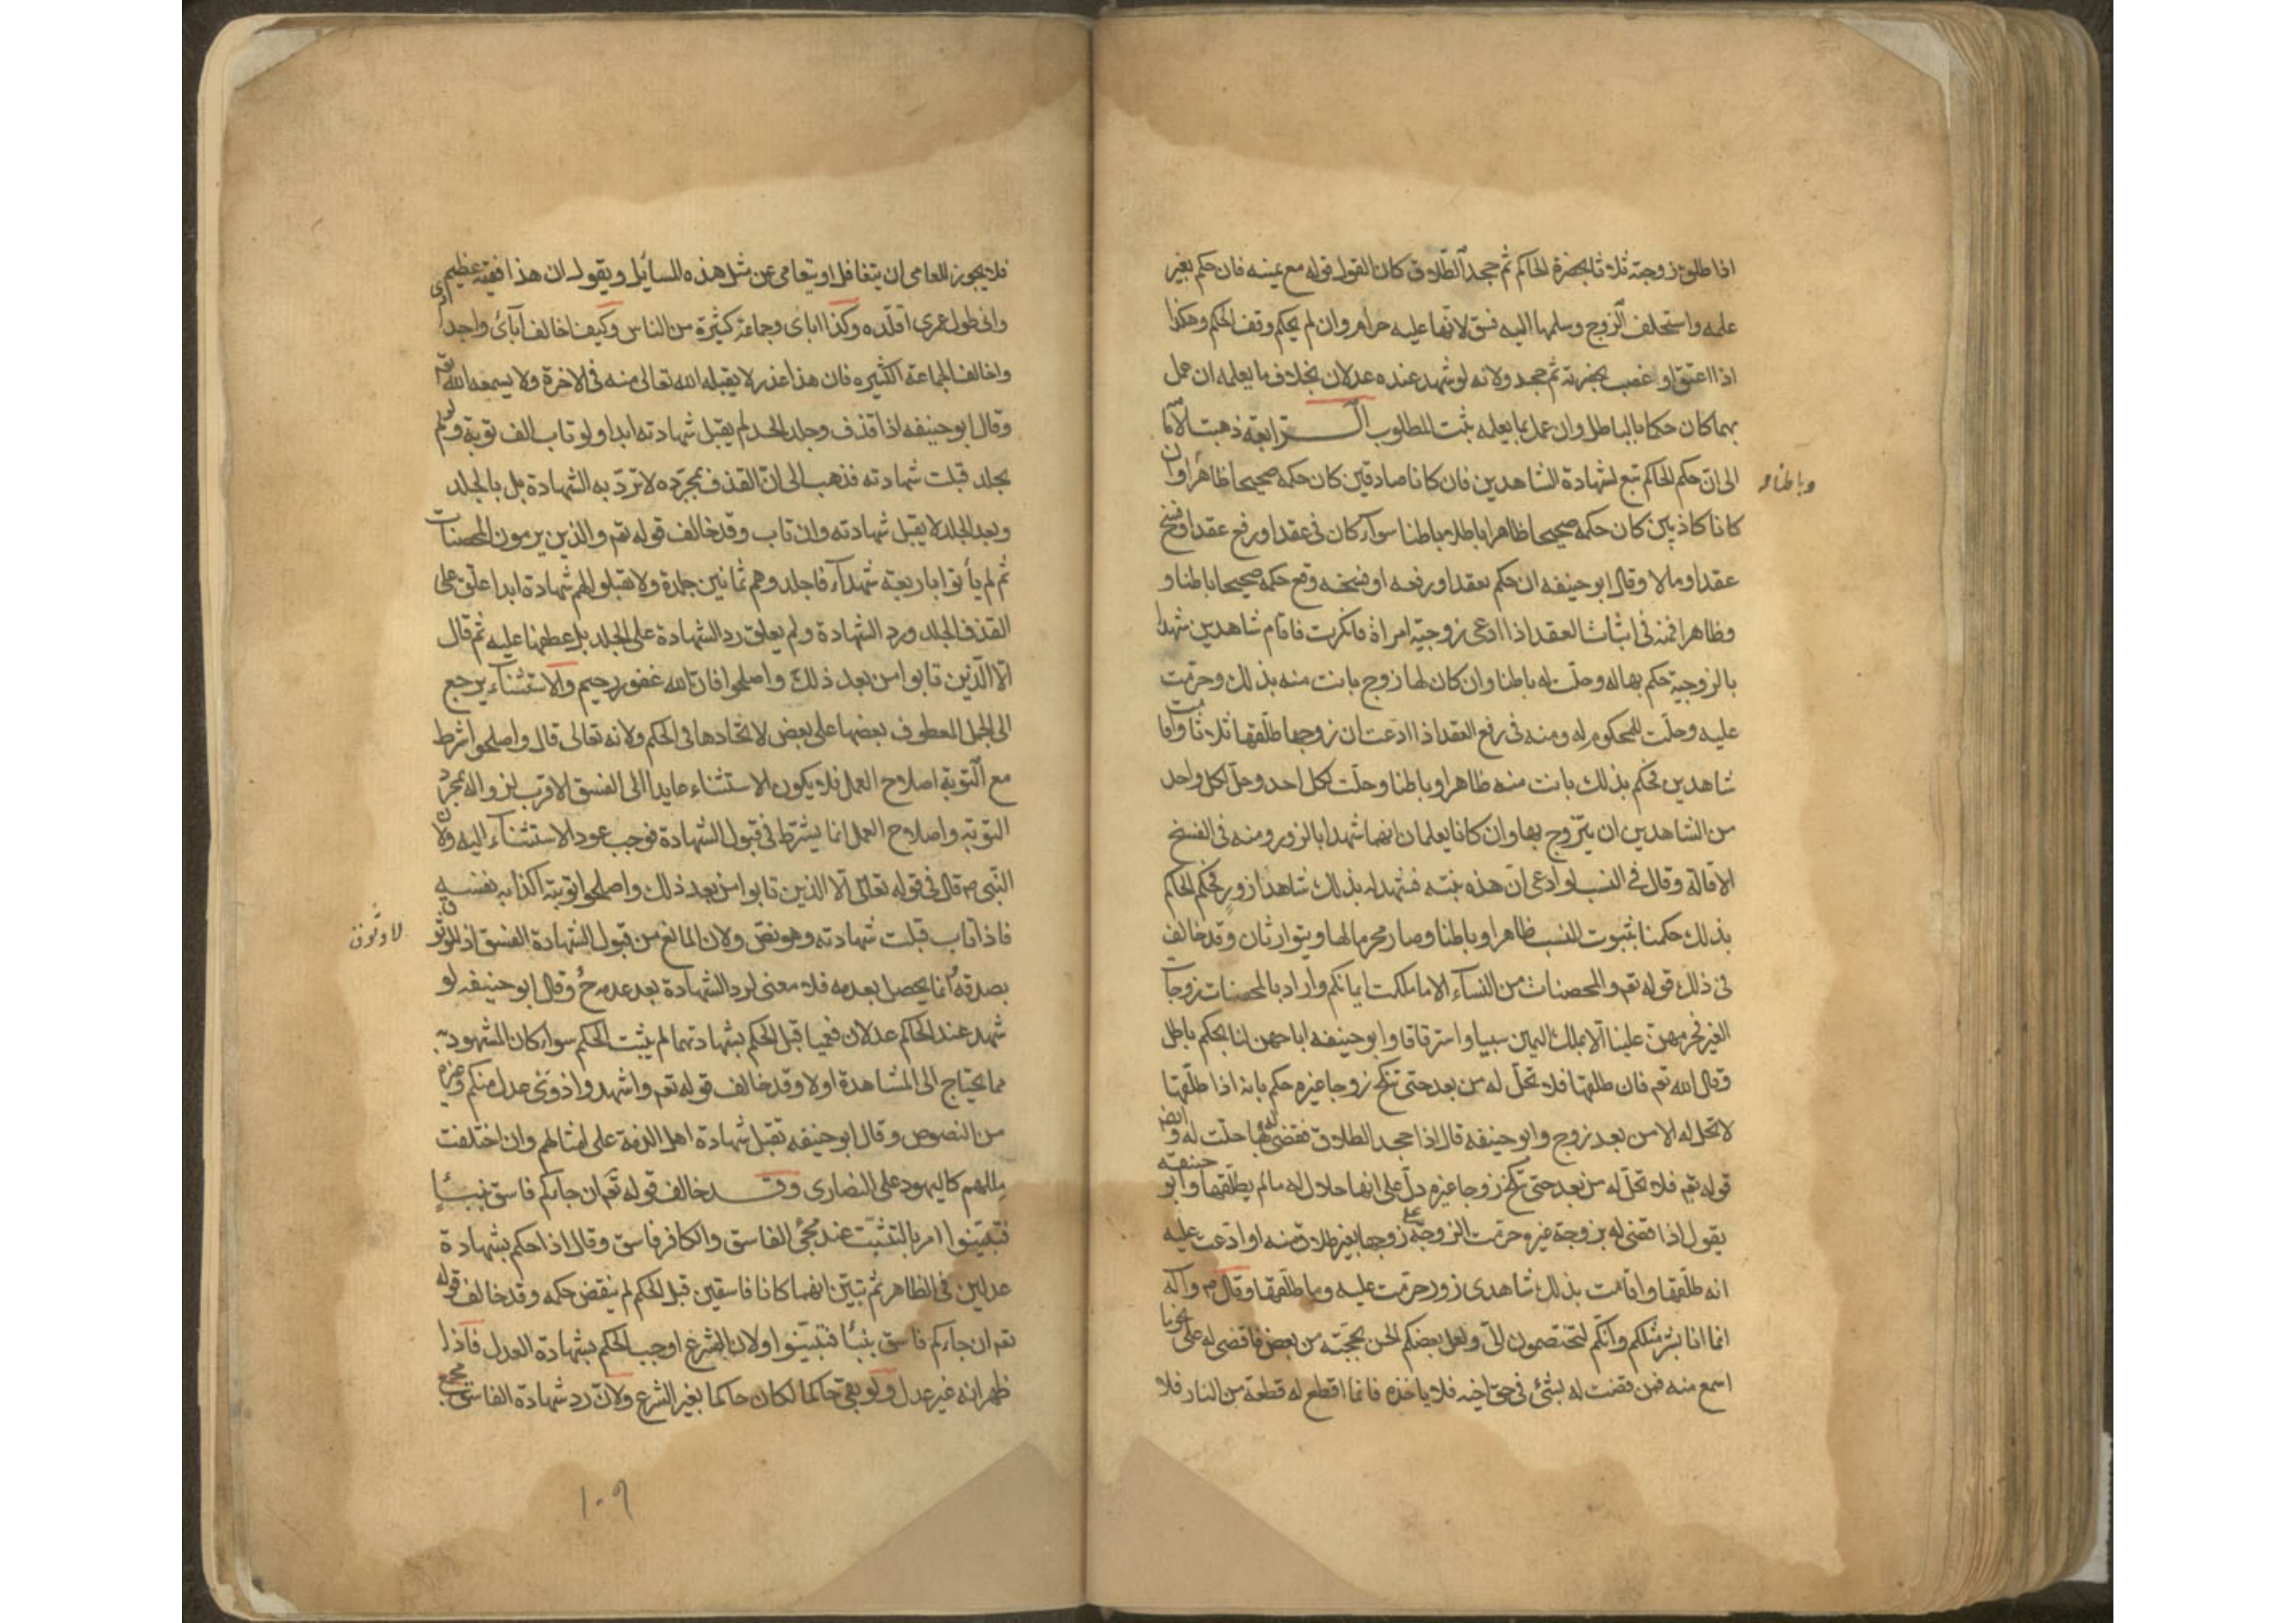 اذا طلق زوجته ثلاثا بحضرة الحاكم ثم جحد الطلاق كان القول قوله مع يمينه فان حكم بغير
علمه واستحلف الزوج وسلمها اليه فسق لانها عليه حرام وان لم يحكم وقف الحكم وهكذا
اذا اعتق او غصب بحضرته ثم جحد ولانه لو شهد عنده عدلان بخلاف ما يعلمه ان عمل
بهما كان حكما بالباطل وان عمل بما يعلمه ثبت المطلوب الرابعة ذهبت الامامية
الى ان حكم الحاكم تبع لشهادة الشاهدين فان كانا صادقين كان حكمه صحيحا ظاهرا وان
وباطنا و
كانا كاذبين كان حكمه صحيحا ظاهرا باطلا باطنا سواء كان في عقد او رفع عقد او فسخ
عقد او مالا وقال ابو حنيفه ان حكم بعقد او رفعه او فسخه وقع حكمه صحيحا باطنا و
وظاهرا فمنه في اثبات العقد اذا ادعى زوجية امراة فانكرت فاقام شاهدين شهدا
بالزوجية حكم بها له وحلت له باطنا وان كان لها زوج بانت منه بذلك وحرمت
عليه وحلت للمحكوم له ومنه في رفع العقد اذا ادعت ان زوجها طلقها ثلاثا واقامت
شاهدين فحكم بذلك بانت منه ظاهرا وباطنا وحلت لكل احد وحل لكل واحد
من الشاهدين ان يتزوج بها وان كانا يعلمان انهما شهدا بالزور ومنه في الفسخ
الاقالة وقال في النسب لو ادعى ان هذه بنته فشهد له بذلك شاهدا زور فحكم الحاكم
بذلك حكمنا بثبوت النسب ظاهرا وباطنا وصار محرما لها ويتوارثان وقد خالف
في ذلك قوله تعم والمحصنات من النساء الا ما ملكت ايمانكم واراد بالمحصنات زوجات
الغير فحرمهن علينا الا بملك اليمين سبيا واسترقاقا وابو حنيفه اباحهن لنا بحكم باطل
وقال الله تعم فان طلقها فلا تحل له من بعد حتى تنكح زوجا غيره حكم بانه اذا طلقها
لا تحل له الا من بعد زوج وابو حنيفه قال اذا جحد الطلاق فقضى له بها حلت له وايضا
قوله تعم فلا تحل له من بعد حتى تنكح زوجا غيره دل على انها حلال له ما لم يطلقها وابو حنيفة
يقول اذا قضى له بزوجة غيره حرمت الزوجة على زوجها بغير طلاق منه او ادعت عليه
انه طلقها واقامت بذلك شاهدى زور حرمت عليه وما طلقها وقال ص واله
انما انا بشر مثلكم وانكم لتختصمون الى ولعل بعضكم الحن بحجته من بعض فاقضى له على نحو ما
اسمع منه فمن قضيت له بشئ في حق اخيه فلا ياخذه فانما اقطع له قطعة من النار فلا
فلا يجوز للعامى ان يتغافل او يتعامى عن مثل هذه المسائل ويقول ان هذا فقيه عظيم
وانى طول عمرى اقلده وكذا اباى وجماعة كثيرة من الناس وكيف اخالف آبائى واجدادى
واخالف الجماعة الكثيره فان هذا عذر لا يقبله الله تعالى منه فى الاخرة ولا يسمعه الله تعم
وقال ابو حنيفه اذا قذف وجلد الحد لم يقبل شهادته ابدا ولو تاب الف توبة ولو لم
يجلد قبلت شهادته فذهب الى ان القذف بمجرده لا ترد به الشهادة بل بالجلد
وبعد الجلد لا يقبل شهادته وان تاب وقد خالف قوله تعم والذين يرمون المحصنات
ثم لم يأتوا باربعة شهداء فاجلدوهم ثمانين جلدة ولا تقبلوا لهم شهادة ابدا علق على
القذف الجلد ورد الشهادة ولم يعلق رد الشهادة على الجلد بل عطفها عليه ثم قال
الا الذين تابوا من بعد ذلك واصلحوا فان الله غفور رحيم والاستثناء يرجع
الى الجمل المعطوف بعضها على بعض لاتحادها في الحكم ولانه تعالى قال واصلحوا شرط
مع التوبة اصلاح العمل فلا يكون الاستثناء عايدا الى الفسق الاقرب لزواله بمجرد
التوبة واصلاح العمل انما يشترط في قبول الشهادة فوجب عود الاستثناء اليه ولان
النبى ص قال في قوله تعالى الا الذين تابوا من بعد ذلك واصلحوا توبته اكذابه نفسه
فاذا تاب قبلت شهادته وهو نص ولان المانع من قبول الشهادة الفسق اذ الوثوق
بصدقه انما يحصل بعدمه فلا معنى لرد الشهادة بعد عدمه ح وقال ابو حنيفه لو
شهد عند الحاكم عدلان فعميا قبل الحكم بشهادتهما لم يثبت الحكم سواء كان المشهود به
مما يحتاج الى المشاهدة اولا وقد خالف قوله تعم واشهدوا ذوى عدل منكم وغيره
من النصوص وقال ابو حنيفه تقبل شهادة اهل الذمة على امثالهم وان اختلفت
مللهم كاليهود على النصارى وقد خالف قوله تعم ان جاءكم فاسق بنبأ
فتبينوا امر بالتثبت عند مجئ الفاسق والكافر فاسق وقال اذا حكم بشهادة
عدلين في الظاهر ثم تبين انهما كانا فاسقين قبل الحكم لم ينقض حكمه وقد خالف قوله
تعم ان جاءكم فاسق بنبأ فتبينوا ولان الشرع اوجب الحكم بشهادة العدل فاذا
ظهر انه غير عدل ولو بقى حاكما لكان حاكما بغير الشرع ولان رد شهادة الفاسق مجمع
١٠٩